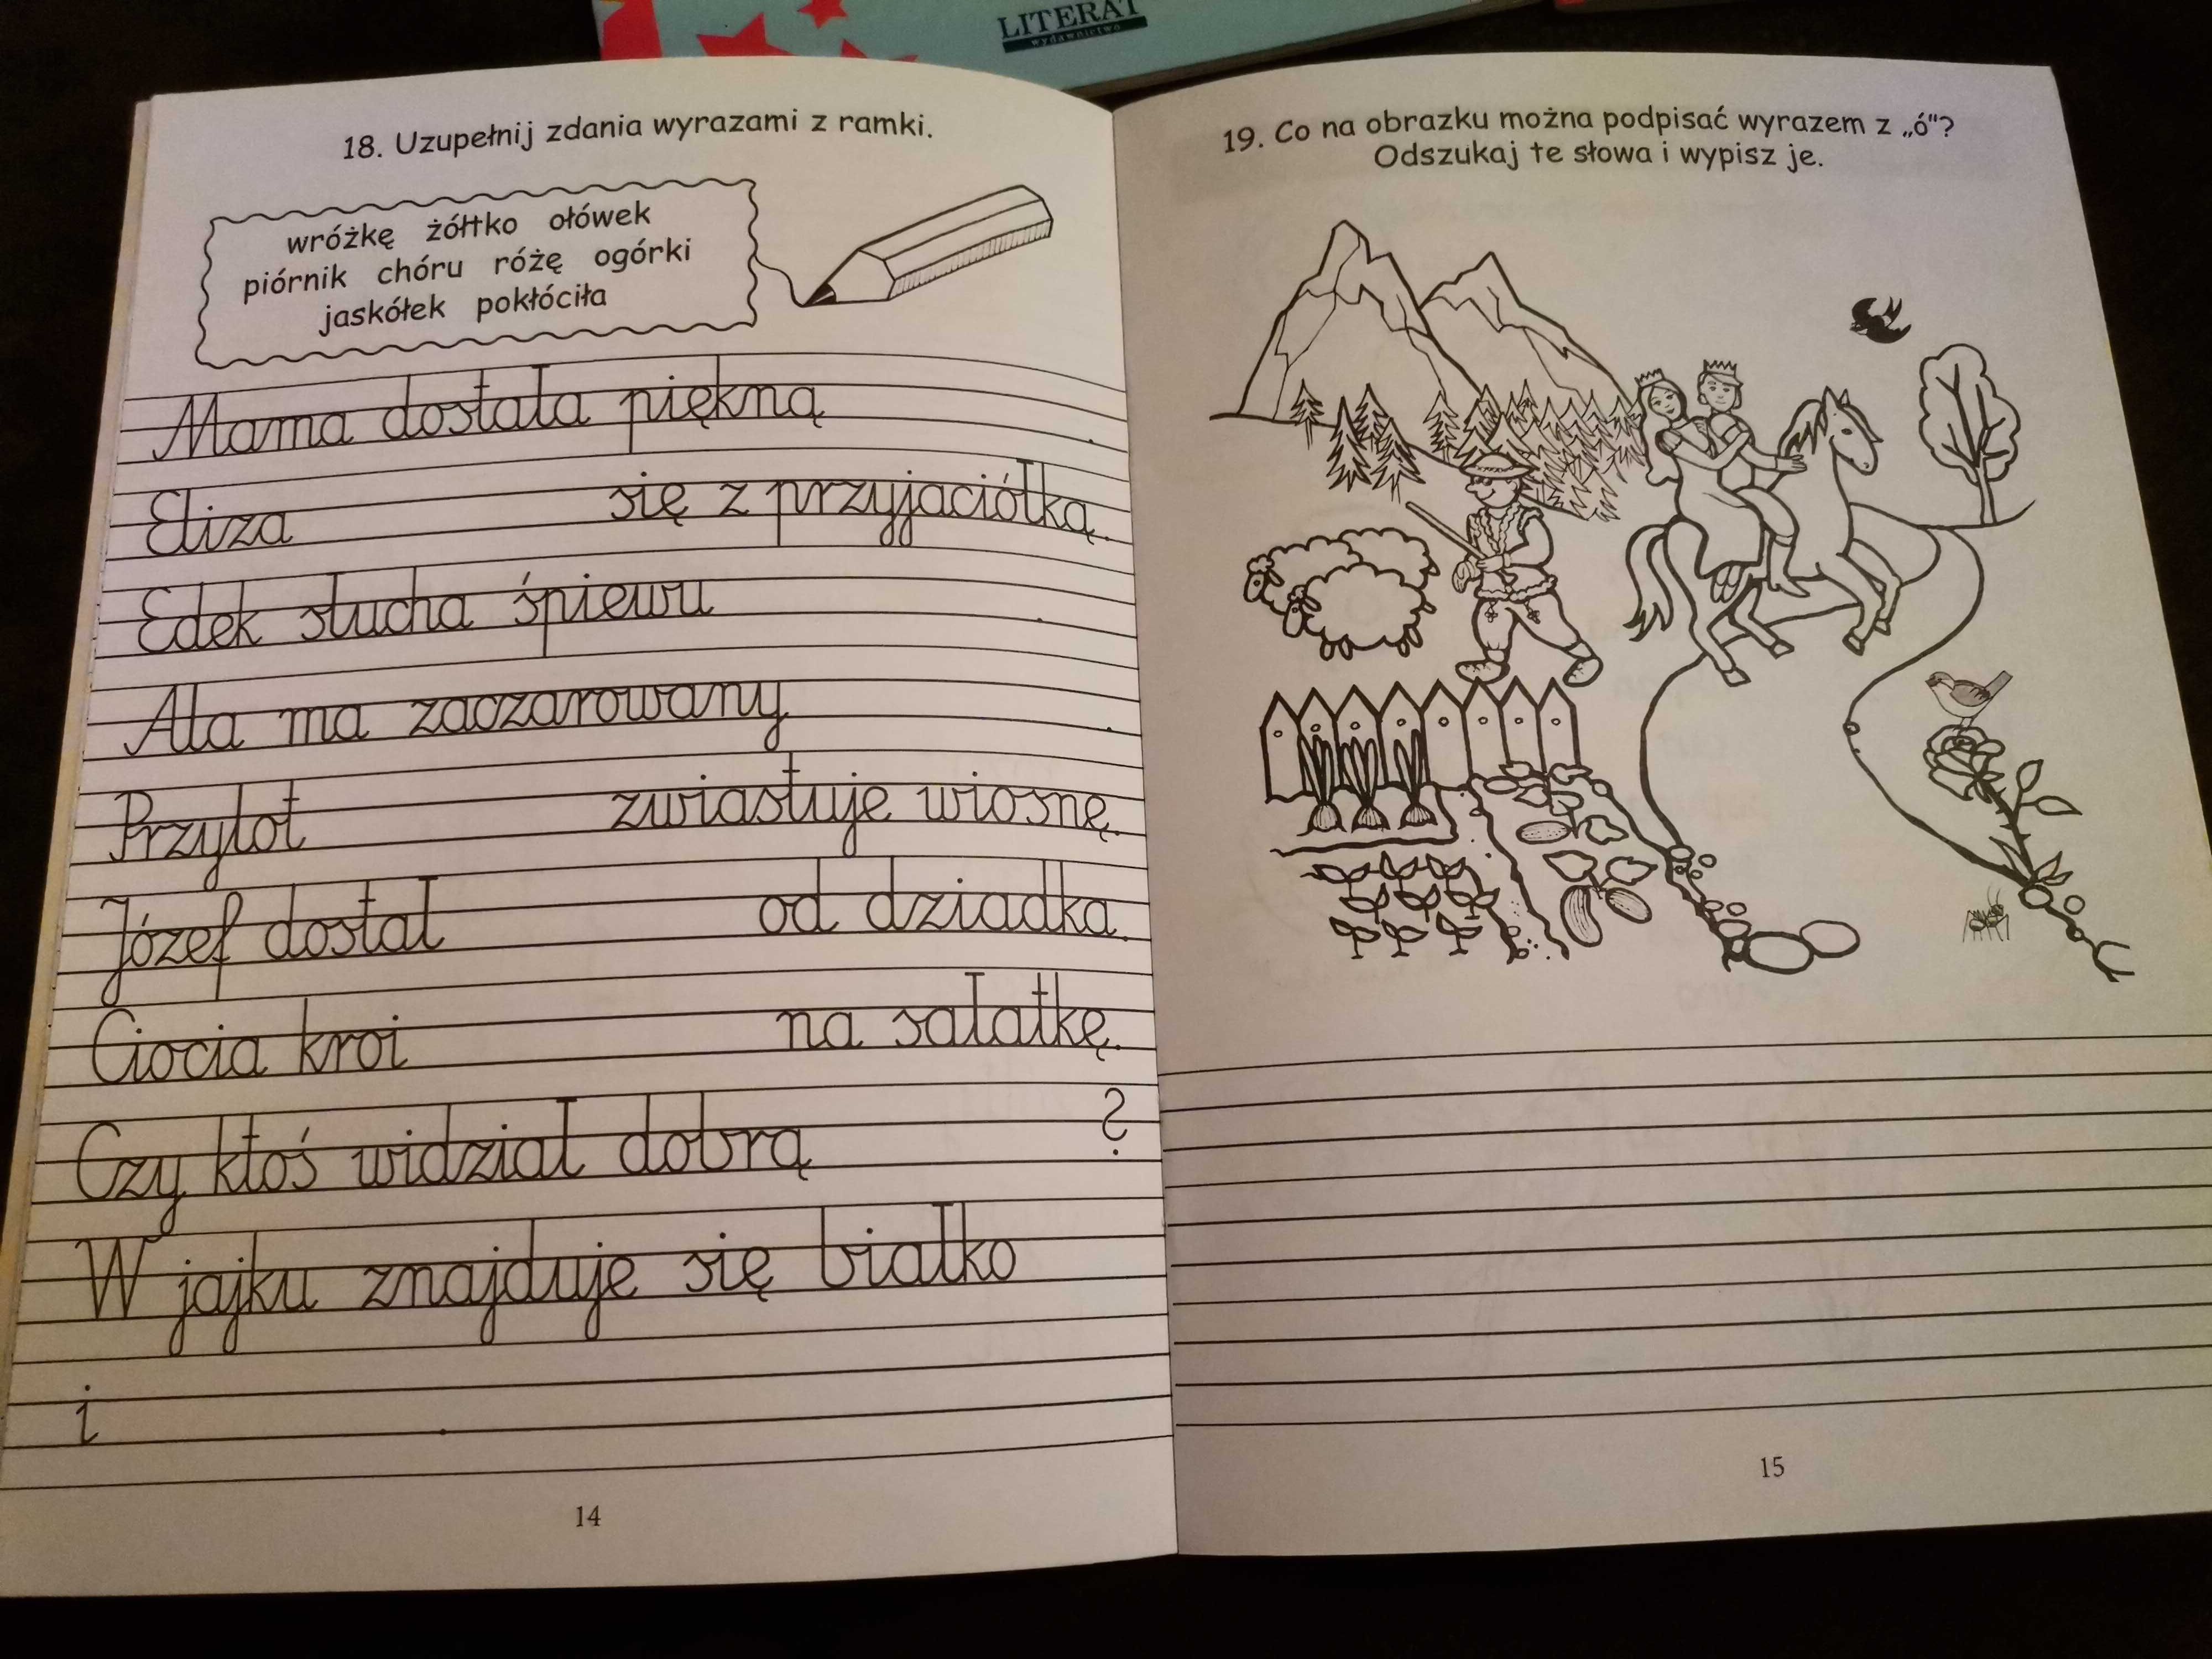 LITERAT
wydawnictwo
18. Uzupełnij zdania wyrazami z ramki.
wróżkę żółtko ołówek
piórnik chóru różę ogórki
jaskółek pokłóciła
Mama dostała piękną .
Eliza się z przyjaciółką.
Edek słucha śpiewu .
Ala ma zaczarowany .
Przylot zwiastuje wiosnę.
Józef dostał od dziadka.
Ciocia kroi na sałatkę.
Czy ktoś widział dobrą ?
W jajku znajduje się białko
i .
14
19. Co na obrazku można podpisać wyrazem z „ó"?
Odszukaj te słowa i wypisz je.
15